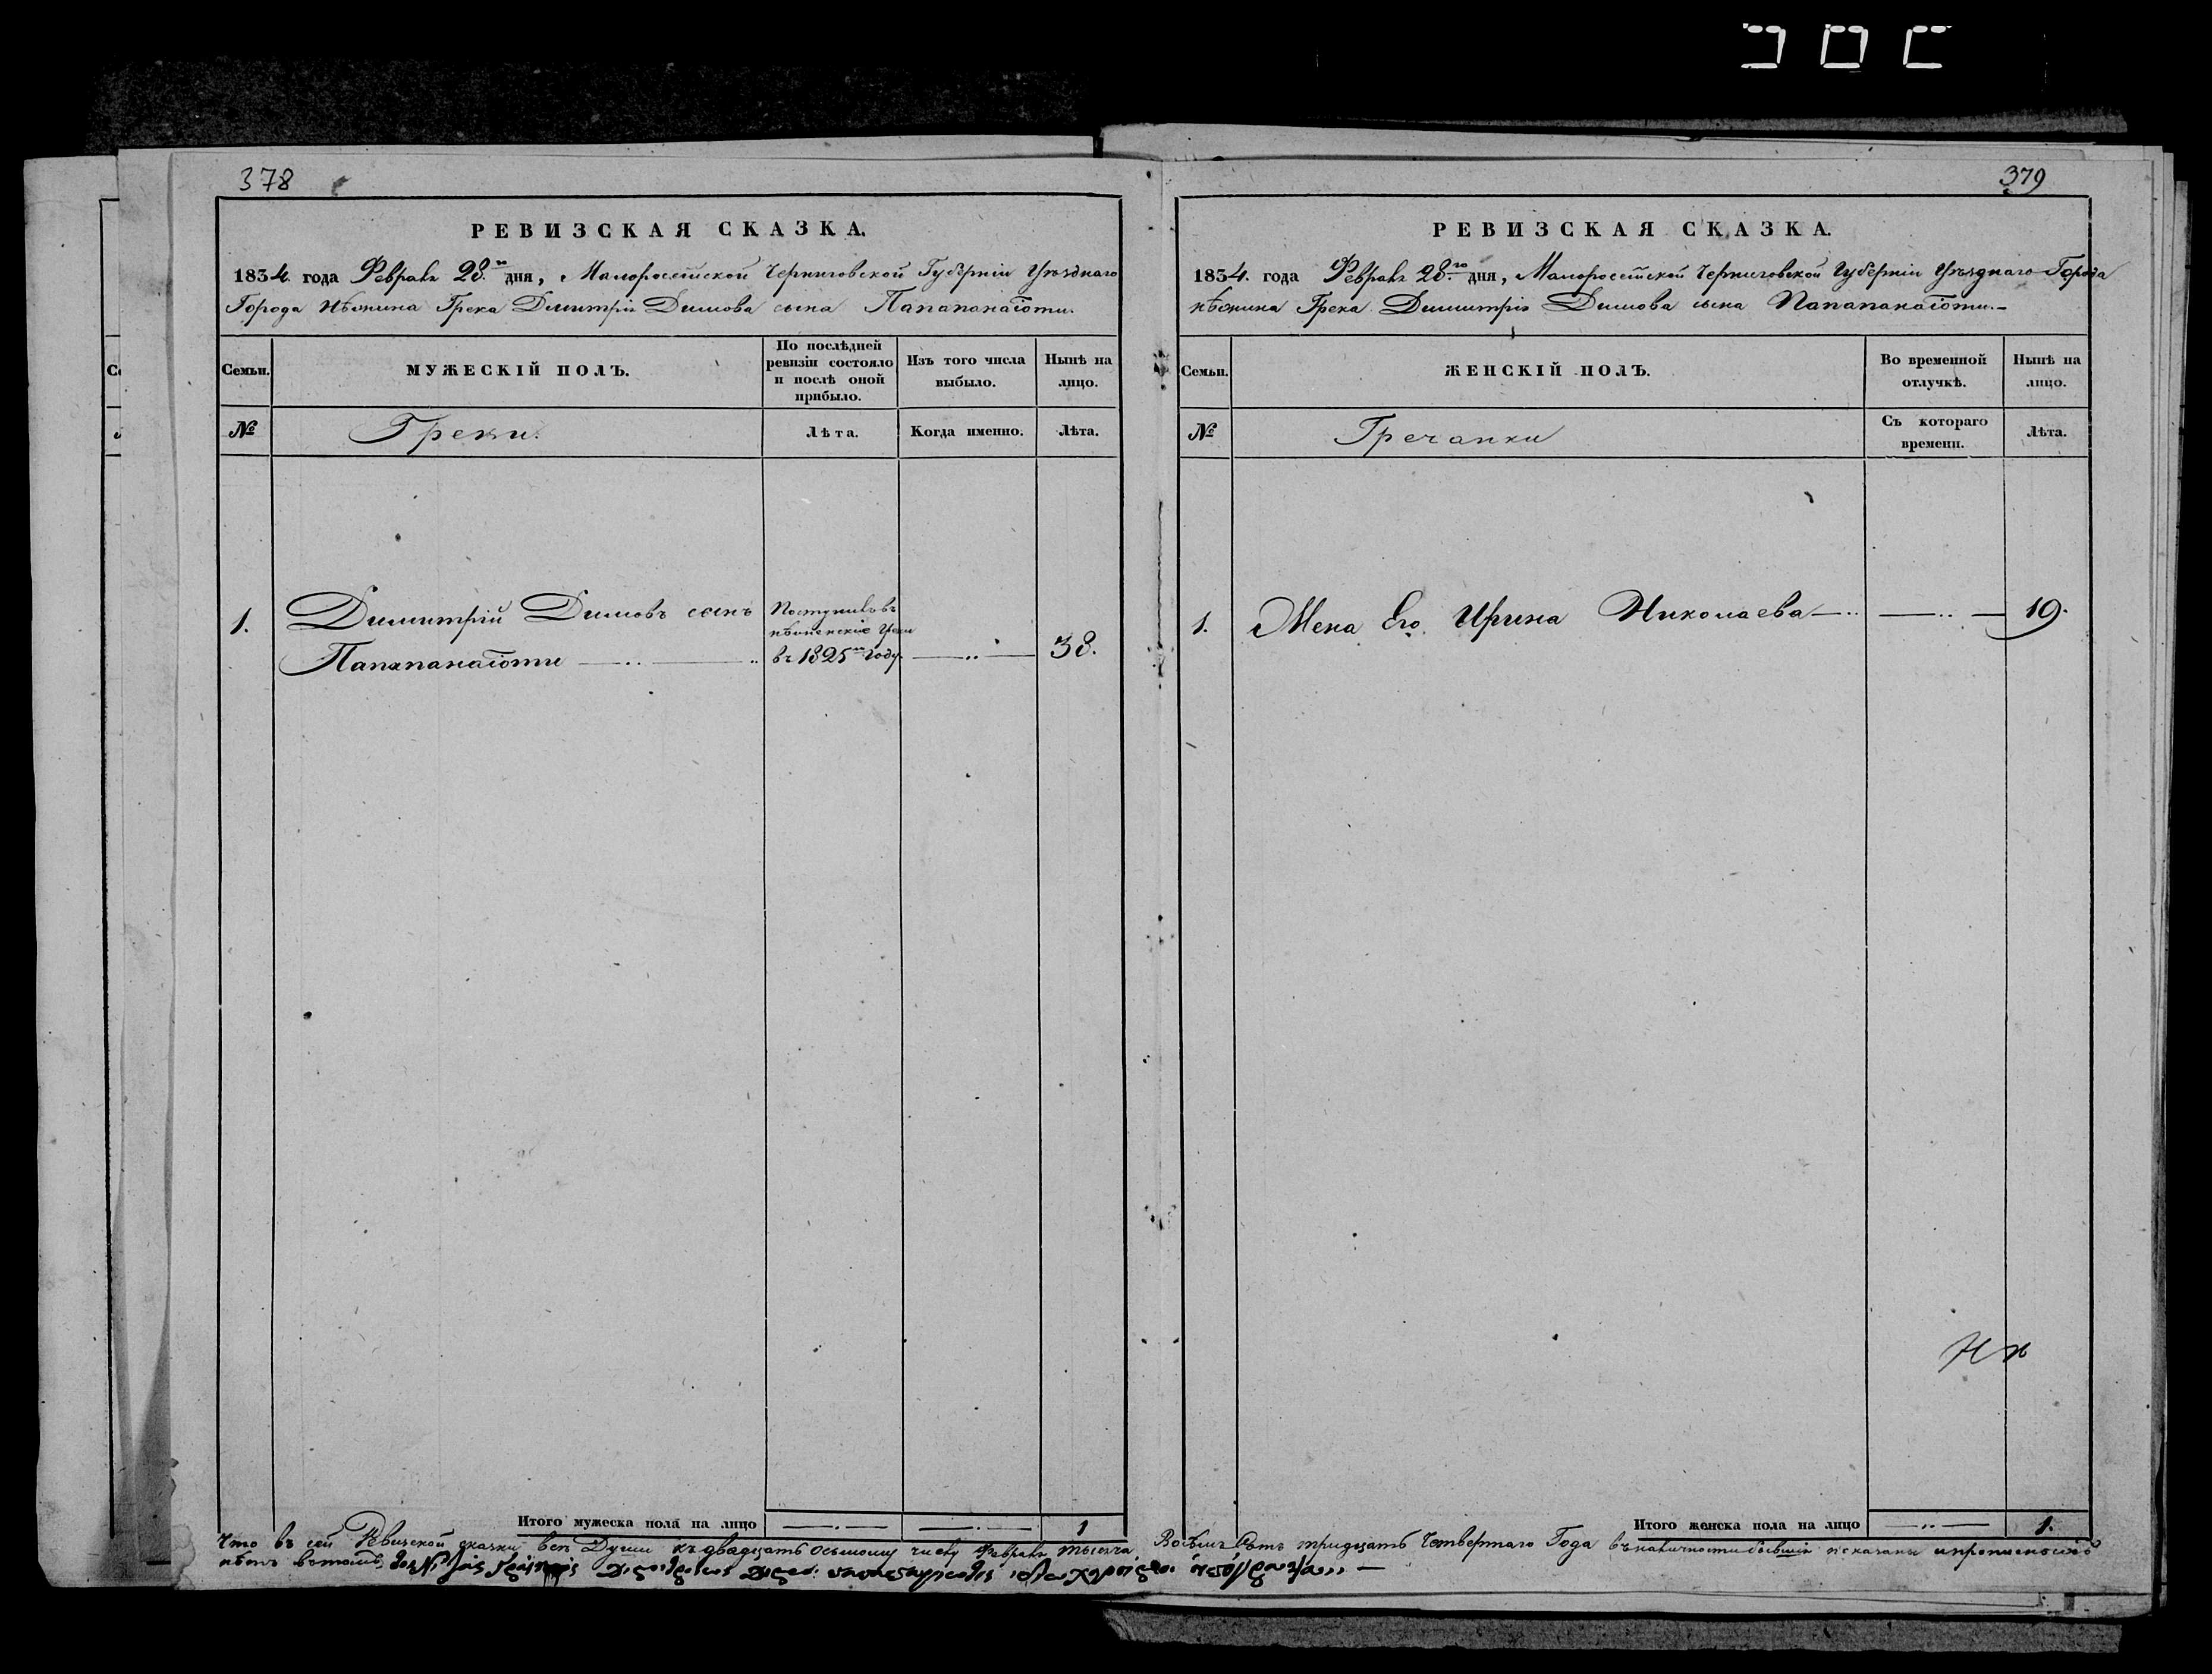 378
РЕВИЗСКАЯ СКАЗКА.
1834. года Февраля 28го дня, Малоросейской Черниговской Губерніи Уѣзднаго
Города Нѣжина Грека Димитрія Димова сына Папапанаіоти.
Семьи.
МУЖЕСКІЙ ПОЛЪ.
По послѣдней
ревизіи состояло
и послѣ оной
прибыло.
Изъ того числа
выбыло.
Нынѣ на
лицо.
№
Греки.
Лѣта.
Когда именно.
Лѣта.
1.
Димитрій Димовъ сынъ
Папапанаіоти
Поступилъ въ
нѣжинскіе греки
въ 1825м году.
38.
Итого мужеска пола на лицо
1
379
РЕВИЗСКАЯ СКАЗКА.
1834. года Февраля 28го дня, Малоросейской Черниговской Губерніи Уѣзднаго Города
нѣжина Грека Димитрія Димова сына Папапанаіоти.
Семьи.
ЖЕНСКІЙ ПОЛЪ.
Во временной
отлучкѣ.
Нынѣ на
лицо.
№
Гречанки
Съ котораго
времени.
Лѣта.
1.
Жена Его Ирина Николаева
19.
Итого женска пола на лицо
1.
Что въ сей Ревизской сказки всѣ Души къ двадцать осьмому числу Февраля тысяча Восѣмъ Сотъ тридцать Четвертаго Года въ наличности бывшія показаны и прописныхъ
нѣтъ въ томъ